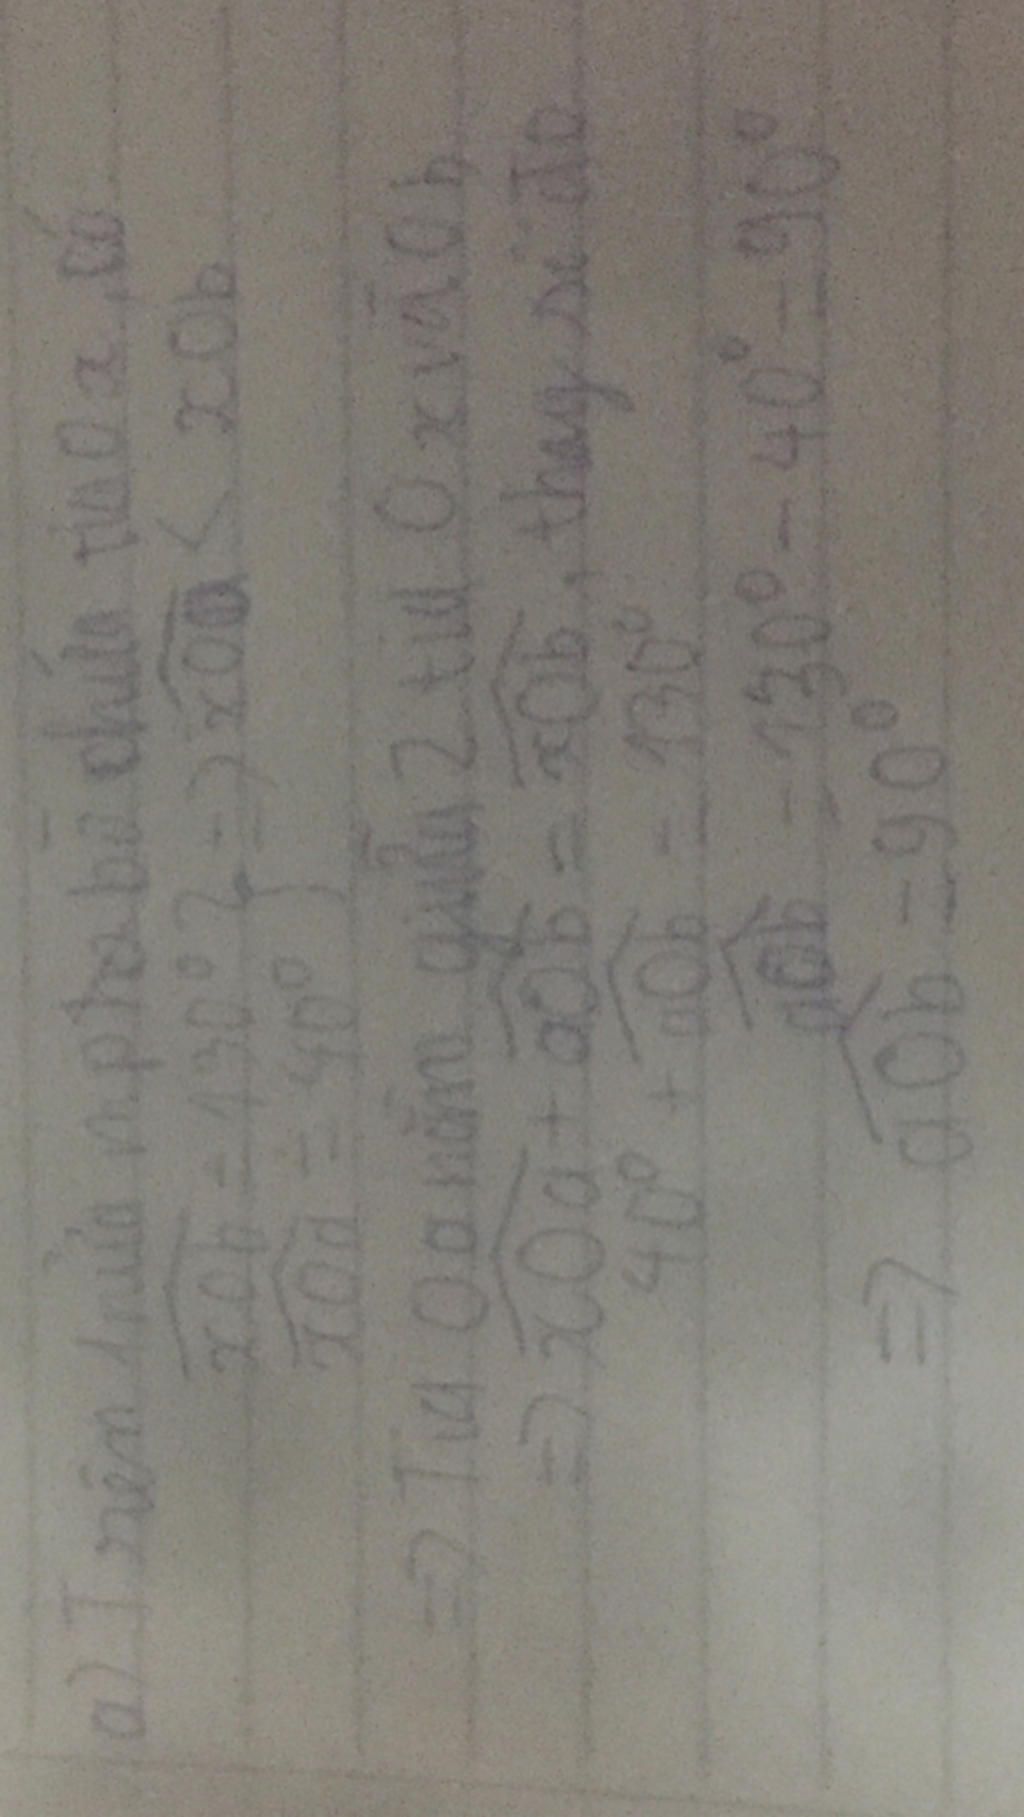 a) Trên 1 nửa mp bờ chứa tia Ox, có
xOb = 130° } => xOa < xOb
xOa = 40°
=> Tia Oa nằm giữa 2 tia Ox và Ob
=> xOa + aOb = xOb, thay số đo
40° + aOb = 130°
aOb = 130° - 40° = 90°
=> aOb = 90°